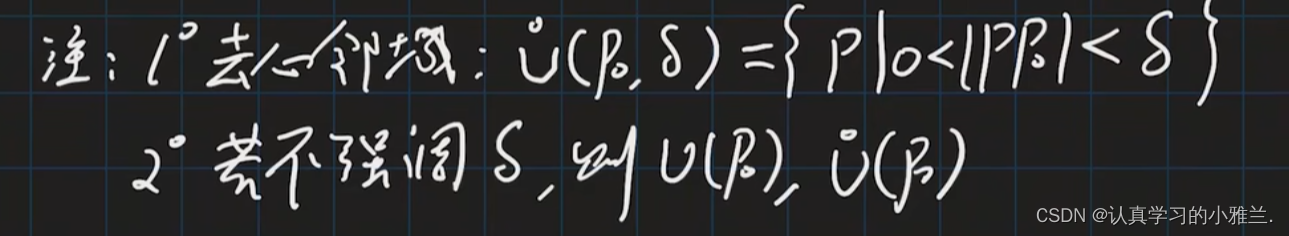 注: 1° 去心邻域: Ů(P₀, δ) = { P | 0 < |PP₀| < δ }
2° 若不强调 δ, 则 U(P₀), Ů(P₀)
CSDN @认真学习的小雅兰.